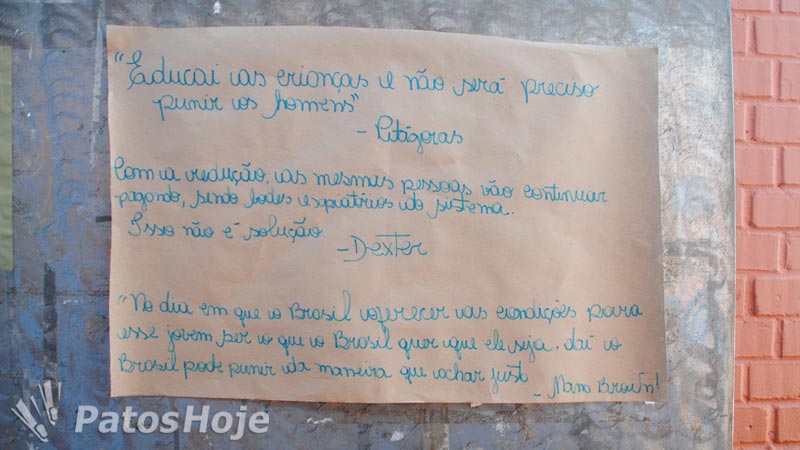 "Educai as crianças e não será preciso
punir os homens"
- Pitágoras
Com a redução, as mesmas pessoas vão continuar
pagando, sendo bodes espiatórios do sistema.
Isso não é solução
- Dexter
"No dia em que o Brasil oferecer as condições para
esse jovem ser o que o Brasil quer que ele seja, daí o
Brasil pode punir da maneira que achar justo
- Mano Brown!
PatosHoje